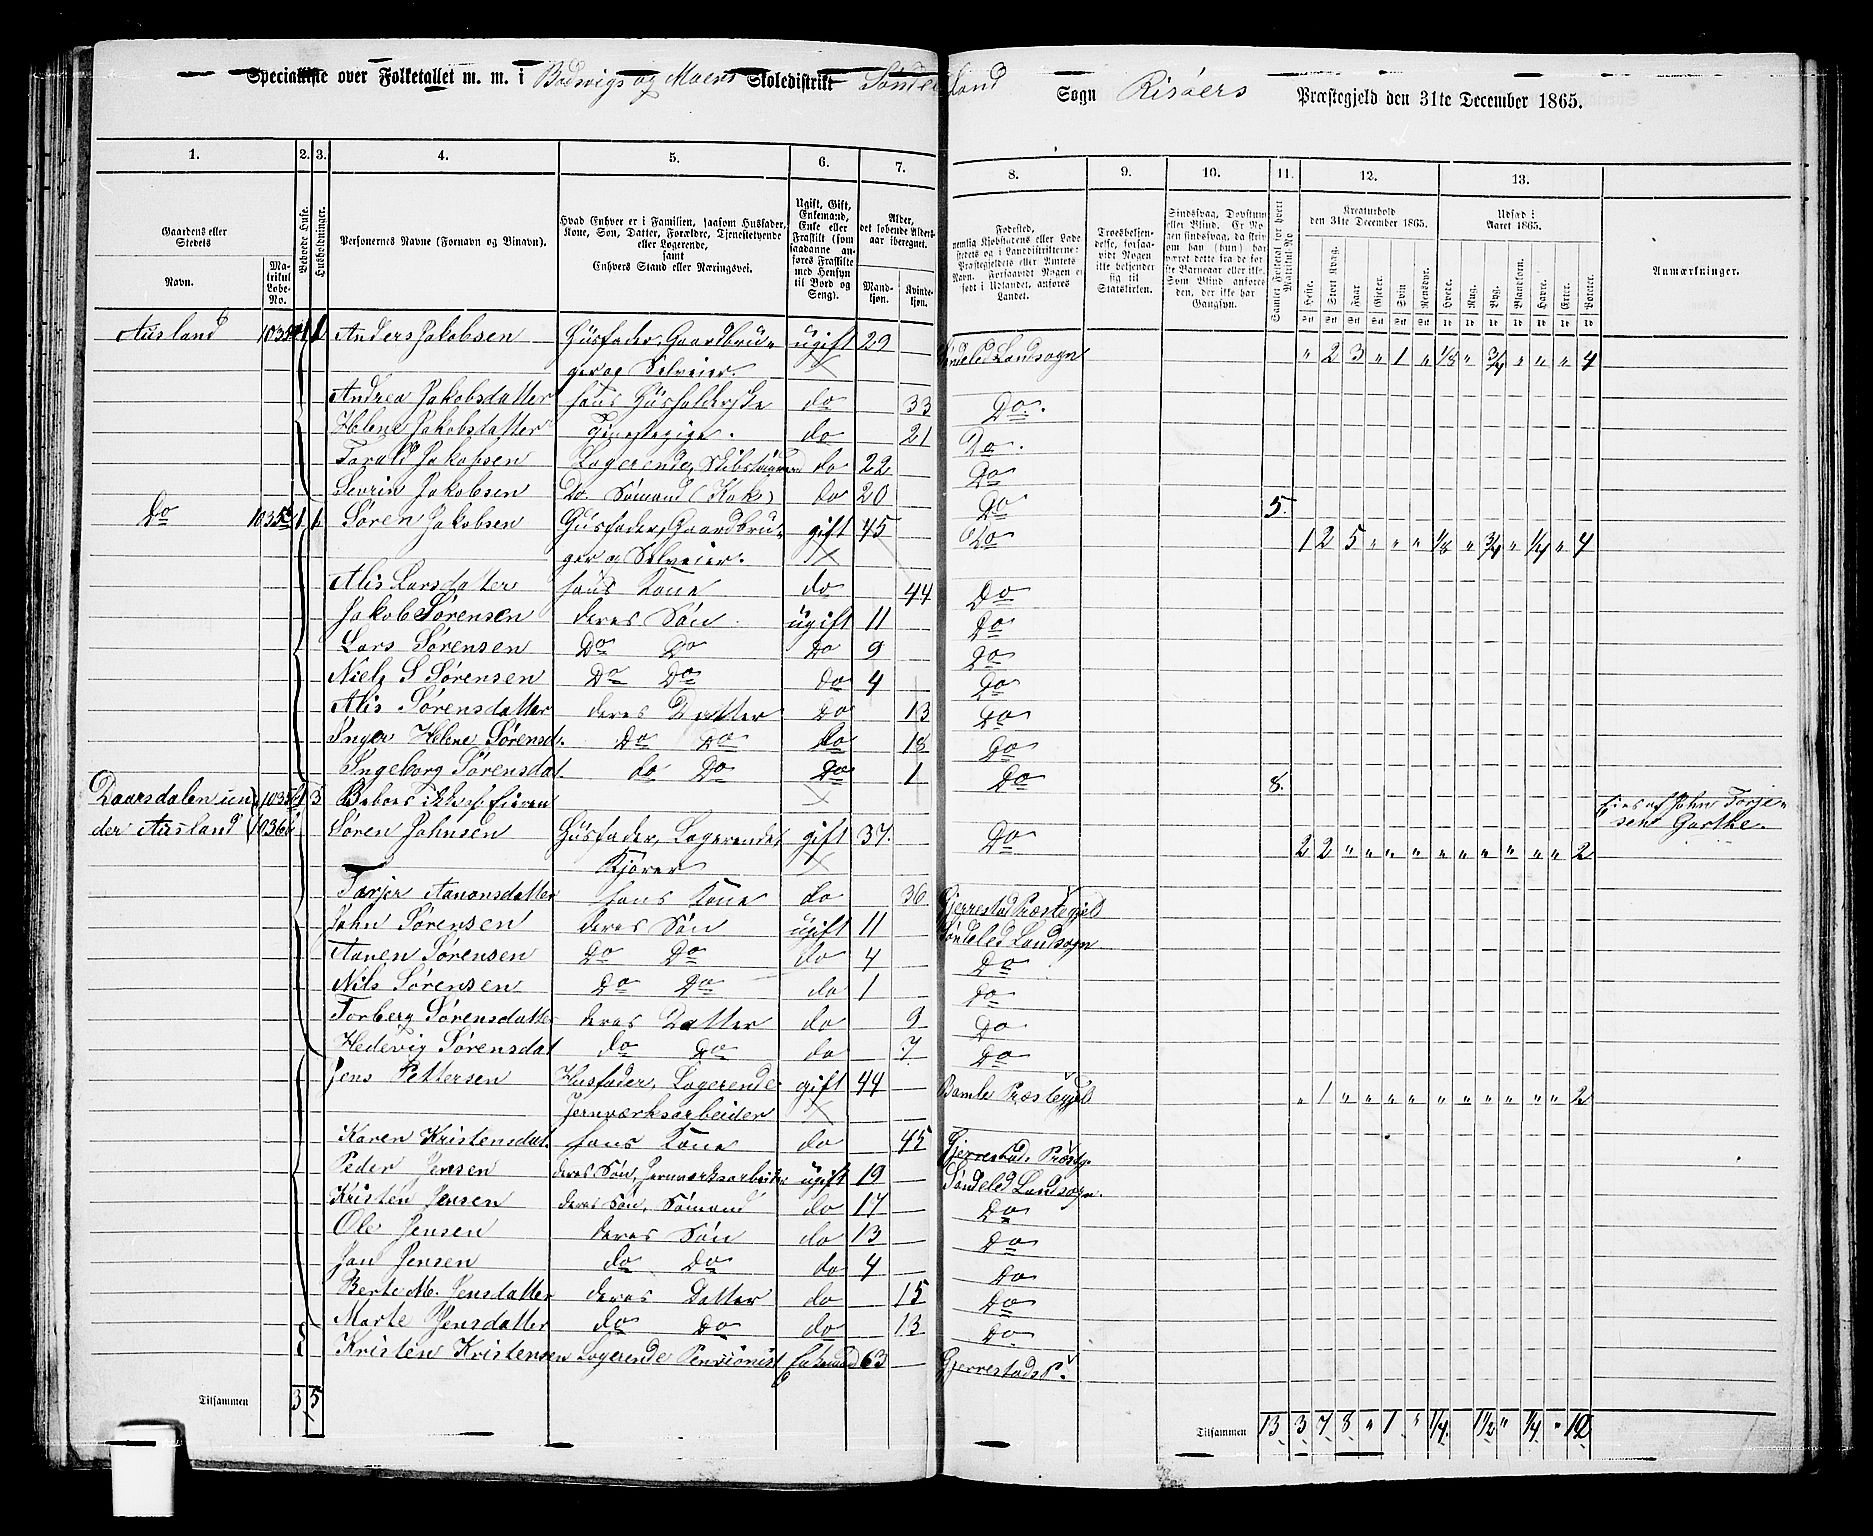 Specialliste over Folketallet m. m. i Bodvigs og Moens Skoledistrikt Sønde land Sogn Risøers Præstegjeld den 31te December 1865.
1. 2. 3. 4. 5. 6. 7. 8. 9. 10. 11. 12. 13.
Gaardens eller Stedets
Navn.
Matrikul Løbe-No.
Beboede Huse.
Husholdninger.
Personernes Navne (Fornavn og Tilnavn).
Hvad Enhver er i Familien, saasom Husfader,
Kone, Søn, Datter, Forældre, Tjenestetyende
eller Logerende,
samt
Enhvers Stand eller Næringsvei.
Ugift, Gift,
Enkemand,
Enke eller
Fraskilt (som
saadanne anføres
Fraskilte
med Hensyn
til Bord og
Seng).
Alder,
det løbende Aldersaar
iberegnet.
Mandkjøn.
Kvindekjøn.
Fødested,
Sindssvag, Døvstum
eller Blind.
Samlet Folketal for hvert Matrikul No
Kreaturhold
den 31te December 1865.
Heste. Stort Kvæg. Faar. Gjeder. Svin. Rensdyr.
Udsæd i
Aaret 1865.
Hvede. Rug. Byg. Blandkorn. Havre. Erter. Poteter.
Anmærkninger.
Ausland 1035 1 1 Anders Jakobsen Husfader, Gaardbru- ugift 29 Søndeled Landsogn " 2 3 " 1 " 1/8 " 3/4 " " " 4
ger og Selveier
Andrea Jakobsdatter hans Husholderske do 33 Do.
Helene Jakobsdatter Tjenestepige. do 21 Do.
Torald Jakobsen Logerende, do 22 Do
Sevrin Jakobsen Do. Sømand (Kok) do 20 Do 5.
Do 1035 1 1 Søren Jakobsen Husfader, Gaardbru- gift 45 Do 1 2 5 " " " 1/8 " 3/4 " 1/4 " 4
ger og Selveier.
Alis Larsdatter hans Kone do 44 Do
Jakob Sørensen deres Søn ugift 11 Do
Lars Sørensen Do Do Do 9 Do
Niels S Sørensen Do Do do 4 Do
Alis Sørensdatter deres Datter Do 13 Do
Inger Helene Sørensd. Do Do do 18 Do
Ingeborg Sørensdat. do Do Do 1 Do 8.
Daarsdalen un 1035 1 3 Beboes ikke af Eieren Eies af John Torje-
der Ausland 1036 Søren Johnsen Husfader, Logerende, gift 37. Do 2 2 " " " " " " " " " " 2 sen Garthe.
Kjører
Torjer Aanonsdatter hans Kone do 36 Gjerrestad Præstegjel
John Sørensen deres Søn ugift 11 Søndeled Landsogn
Aanen Sørensen Do Do do 4 Do
Nils Sørensen Do Do do 1 Do
Torberg Sørensdatter deres Datter do 9 Do
Hedevig Sørensdat do Do do 7 Do
Jens Pettersen Husfader, Logerende gift 44 Bamle Præstegjel " 1 " " " " " " " " " " 2
Jernværksarbeider
Karen Kristensdat. hans Kone do 45 Gjerrestad. Præstg.
Peder Jensen deres Søn, Jernværksarbeider ugift 19 Søndeled Landsogn.
Kristen Jensen deres Søn, Sømand do 17 Do
Ole Jensen deres Søn do 13 Do
Jan Jensen do Do do 4 Do
Berte M. Jensdatter deres Datter do 15 Do
Marte Jensdatter do Do do 13 Do
Kristen Kristensen Logerende Pensionist Enkemand 63 Gjerrestads P.
Tilsammen 3 5 Tilsammen 13 3 7 8 " 1 " 1/4. 1 1/2 " 1/4 " 12